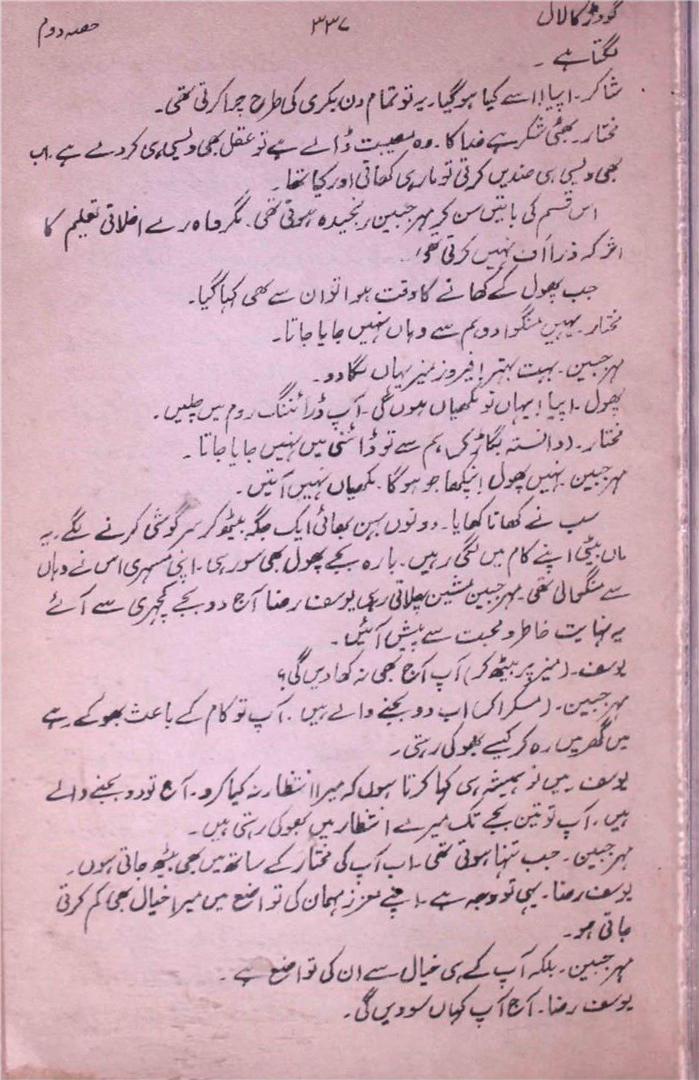 گودڑ کا لال ۳۳۷ حصہ دوم
لگتا ہے ۔
شاکر۔ اپیا! اسے کیا ہوگیا۔ یہ تو تمام دن بکری کی طرح چرا کرتی تھی۔
مختار۔ بھئی شکر ہے خدا کا۔ وہ مصیبت ڈالے ہے تو عقل بھی ویسی ہی کر دے ہے۔ اب
بھی ویسی ہی ضدیں کرتی تو مار ہی کھاتی اور کیا تھا۔
اس قسم کی باتیں سن کر مہر جبین رنجیدہ ہوتی تھی۔ مگر واہ رے اخلاقی تعلیم کا
اثر کہ ذرا اُف نہیں کرتی تھی۔
جب پھول کے کھانے کا وقت ہوا تو ان سے بھی کہا گیا۔
مختار۔ یہیں منگوا دو ہم سے وہاں نہیں جایا جاتا۔
مہر جبین۔ بہت بہتر! فیروز میز یہاں لگا دو۔
پھول۔ اپیا! یہاں تو مکھیاں ہوں گی۔ آپ ڈرائننگ روم میں چلیں۔
مختار۔ (دانستہ بگاڑ کر) ہم سے تو ڈائنی میں نہیں جایا جاتا۔
مہر جبین۔ نہیں پھول! پنکھا جو ہوگا۔ مکھیاں نہیں آتیں۔
سب نے کھانا کھایا۔ دونوں بہن بھائی ایک جگہ بیٹھ کر سرگوشی کرنے لگے۔ یہ
ماں بیٹی اپنے کام میں لگی رہیں۔ بارہ بجے پھول بھی سو رہی۔ اپنی مسہری اس نے وہاں
سے منگوالی تھی۔ مہر جبین مشین چلاتی رہی یوسف رضا آج دو بجے کچہری سے آئے
یہ نہایت خاطر و محبت سے پیش آئیں۔
یوسف۔ (میز پر بیٹھ کر) آپ آج بھی نہ کھاویں گی؟
مہر جبین۔ (مسکرا کر) اب دو بجنے والے ہیں۔ آپ تو کام کے باعث بھوکے رہے
میں گھر میں رہ کر کیسے بھوکی رہتی۔
یوسف۔ میں تو ہمیشہ ہی کہا کرتا ہوں کہ میرا انتظار نہ کیا کرو۔ آج تو دو بجنے والے
ہیں۔ آپ تو تین بجے تک میرے انتظار میں بھوکی رہتی ہیں۔
مہر جبین۔ جب تنہا ہوتی تھی۔ اب آپ کی مختار کے ساتھ میں بھی بیٹھ جاتی ہوں۔
یوسف رضا۔ یہی تو وجہ ہے۔ اپنے معزز مہمان کی تواضع میں میرا خیال بھی کم کرتی
جاتی ہو۔
مہر جبین۔ بلکہ آپ کے ہی خیال سے ان کی تواضع ہے۔
یوسف رضا۔ آج آپ کہاں سوویں گی۔